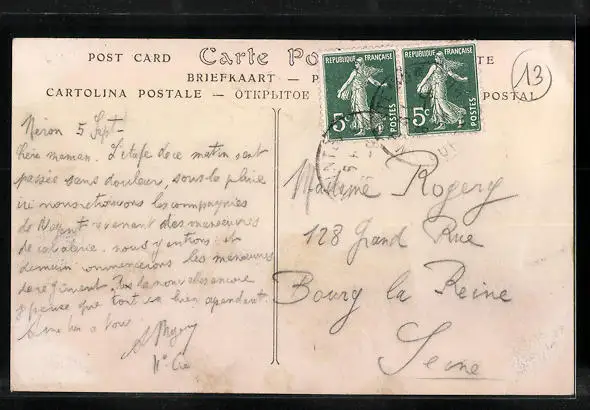 POST CARD Carte Po TE
BRIEFKAART — P
CARTOLINA POSTALE — ОТКРЫТОЕ POSTAL
13
REPUBLIQUE FRANÇAISE
5c
POSTES
REPUBLIQUE FRANÇAISE
5c
POSTES
Néron 5 Sept-
maman. L'étape de ce matin s'est
passée sans douleur, sous la pluie
ici nous retrouvons les compagnies
de venant des manoeuvres
de cavalerie. nous y entrons et
demain commencerons les manoeuvres
de régiment. encore
je pense que tout va bien cependant.
a tous
Madame Rogery
128 Grand Rue
Bourg la Reine
Seine